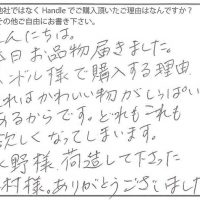 他社ではなく Handle でご購入頂いたご理由はなんですか?
その他ご自由にお書き下さい。
こんにちは。
本日お品物届きました。
ハンドル様で購入する理由
それはかわいい物がいっぱい
あるからです。どれもこれも
欲しくなってしまいます。
野様、荷造して下さった
村様。ありがとうございました